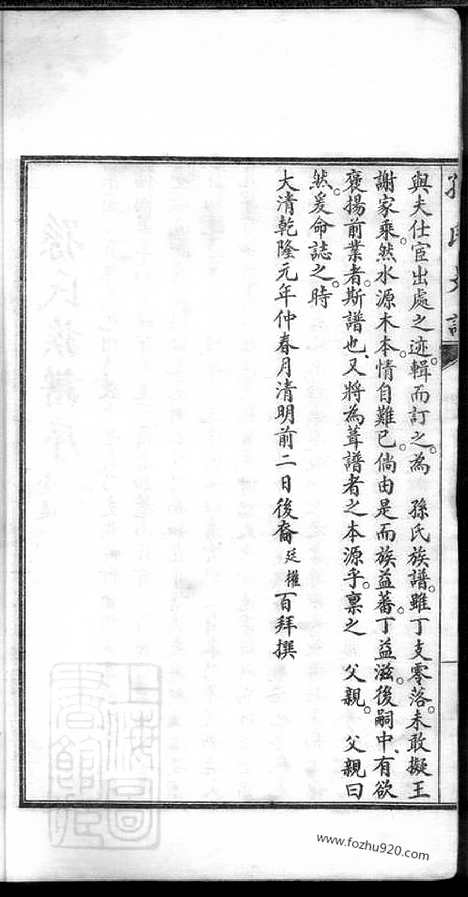 與夫仕宦出處之迹。輯而訂之。為 孫氏族譜。雖丁支零落。未敢擬王
謝家乘。然水源木本。情自難已。倘由是而族益蕃。丁益滋。後嗣中、有欲
褒揚前業者。斯譜也、又將為葺譜者之本源乎。稟之 父親。父親曰
然。爰命誌之。時
大清乾隆元年仲春月清明前二日後裔廷權百拜撰
上海圖
書館藏
www.fozhu920.com